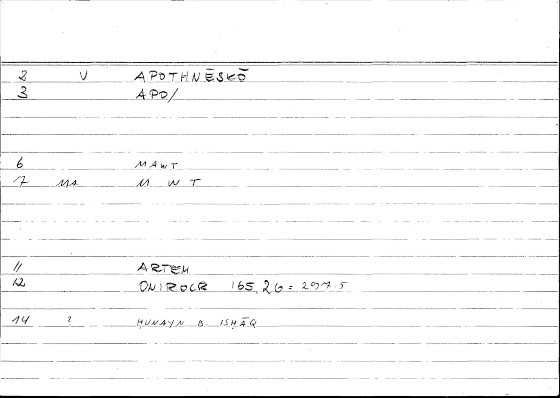 2 V APOTHNĒSKŌ
3 APO/
6 MAWT
7 MA M W T
11 ARTEM
12 ONIROCR 165,26 = 297.5
14 ? HUNAYN B. ISHĀQ